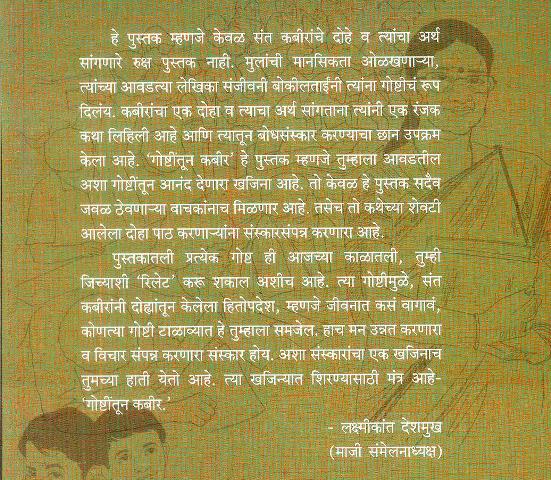 हे पुस्तक म्हणजे केवळ संत कबीरांचे दोहे व त्यांचा अर्थ
सांगणारे रुक्ष पुस्तक नाही. मुलांची मानसिकता ओळखणाऱ्या,
त्यांच्या आवडत्या लेखिका संजीवनी बोकीलताईंनी त्यांना गोष्टीचं रूप
दिलंय. कबीरांचा एक दोहा व त्याचा अर्थ सांगताना त्यांनी एक रंजक
कथा लिहिली आहे आणि त्यातून बोधसंस्कार करण्याचा छान उपक्रम
केला आहे. 'गोष्टींतून कबीर' हे पुस्तक म्हणजे तुम्हाला आवडतील
अशा गोष्टींतून आनंद देणारा खजिना आहे. तो केवळ हे पुस्तक सदैव
जवळ ठेवणाऱ्या वाचकांनाच मिळणार आहे. तसेच तो कथेच्या शेवटी
आलेला दोहा पाठ करणाऱ्यांना संस्कारसंपन्न करणारा आहे.
पुस्तकातली प्रत्येक गोष्ट ही आजच्या काळातली, तुम्ही
जिच्याशी 'रिलेट' करू शकाल अशीच आहे. त्या गोष्टीमुळे, संत
कबीरांनी दोह्यांतून केलेला हितोपदेश, म्हणजे जीवनात कसं वागावं,
कोणत्या गोष्टी टाळाव्यात हे तुम्हाला समजेल. हाच मन उन्नत करणारा
व विचार संपन्न करणारा संस्कार होय. अशा संस्कारांचा एक खजिनाच
तुमच्या हाती येतो आहे. त्या खजिन्यात शिरण्यासाठी मंत्र आहे-
'गोष्टींतून कबीर.'
- लक्ष्मीकांत देशमुख
(माजी संमेलनाध्यक्ष)